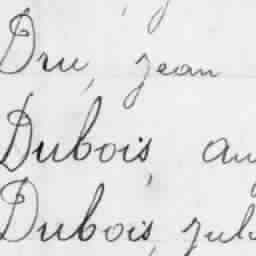 Dru, jean
Dubois, au
Dubois, jul